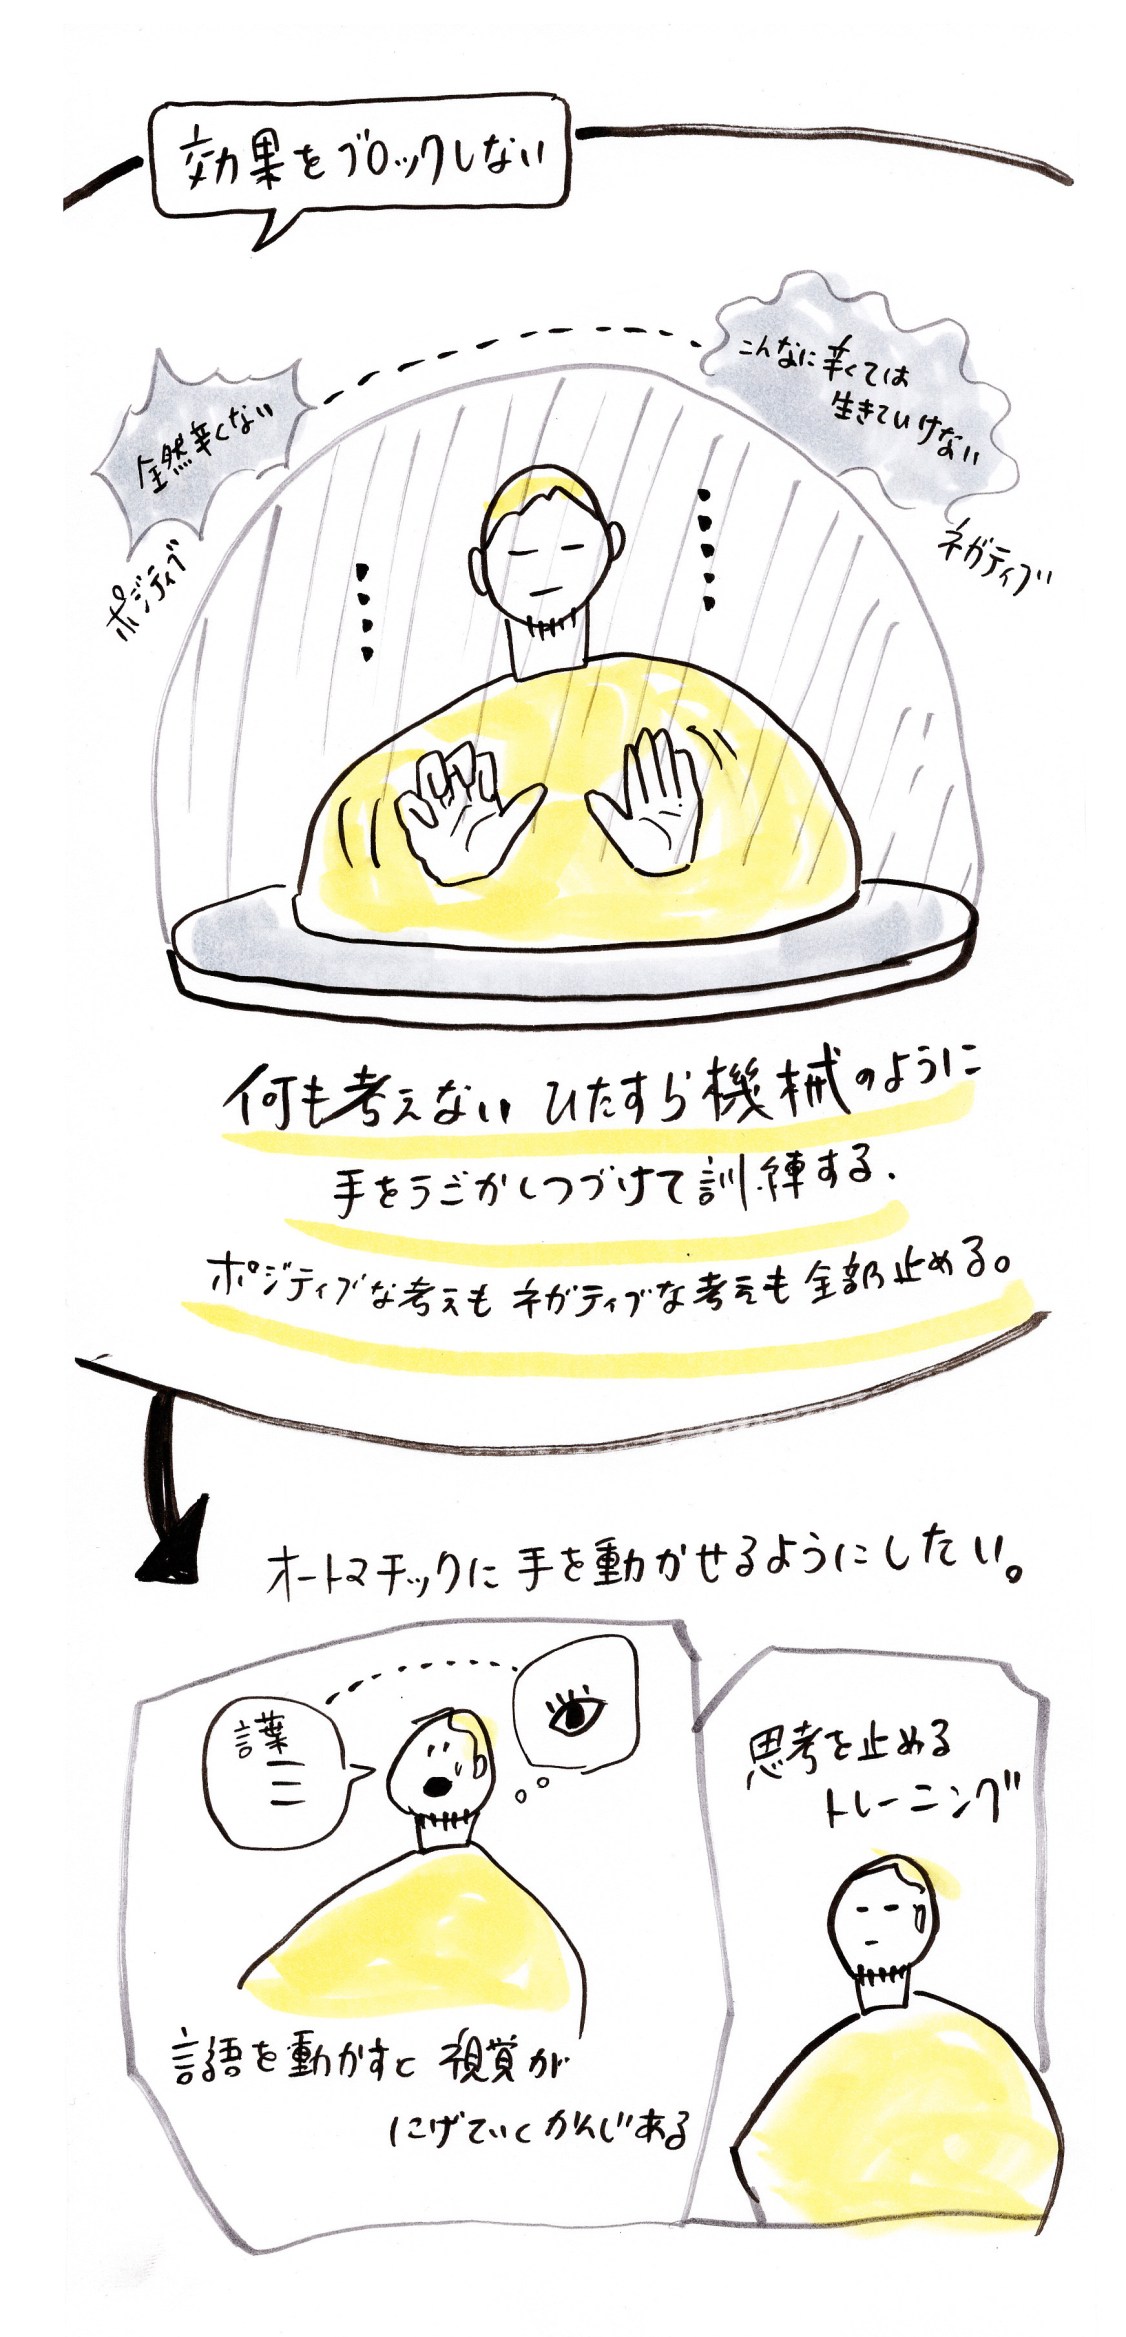 効果をブロックしない
全然辛くない
ポジティブ
こんなに辛くては
生きていけない
ネガティブ
何も考えない ひたすら機械のように
手をうごかしつづけて訓練する.
ポジティブな考えも ネガティブな考えも 全部止める。
オートマチックに 手を動かせるようにしたい。
言葉
言語を動かすと 視覚が
にげていくかんじある
思考を止める
トレーニング